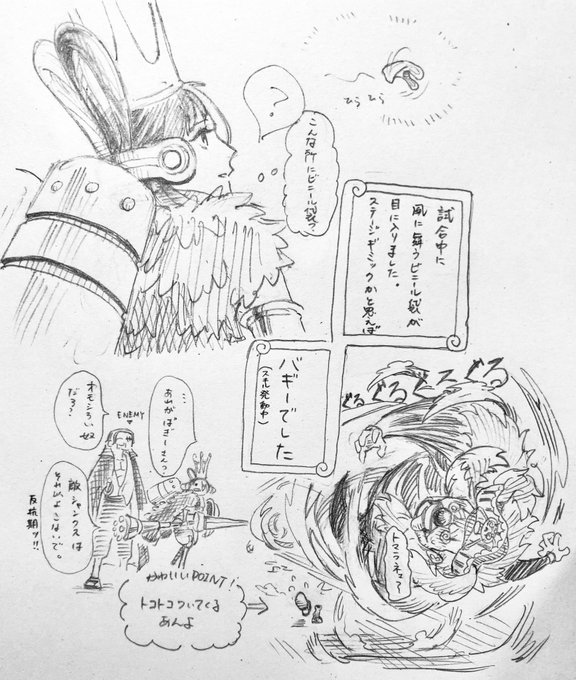 ひらひら
?
こんな所にビニール袋?
試合中に
風に舞うビニール袋が
目に入りました。
ステージギミックかと思えば
バギーでした
(スキル発動中)
ぐるぐるぐるぐる
トマラネェ〜
…あれがばぎーさん?
オモシろい奴
だろ?
ENEMY
敵シャンクスは
それ以上こないで。
反抗期ッ!!
かわいいPOINT!
トコトコついてくる
あんよ